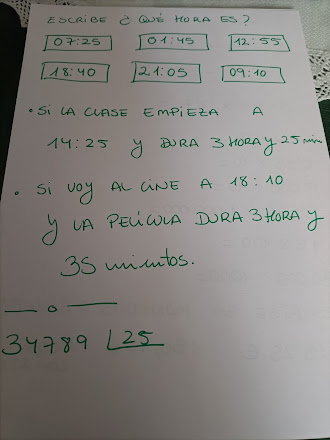 ESCRIBE ¿ QUÉ HORA ES?
07:25 01:45 12:55
18:40 21:05 09:10
• SI LA CLASE EMPIEZA A
14:25 y DURA 3 HORA y 25 min
• SI VOY AL CINE A 18:10
y LA PELÍCULA DURA 3 HORA y
35 minutos.
34789 25